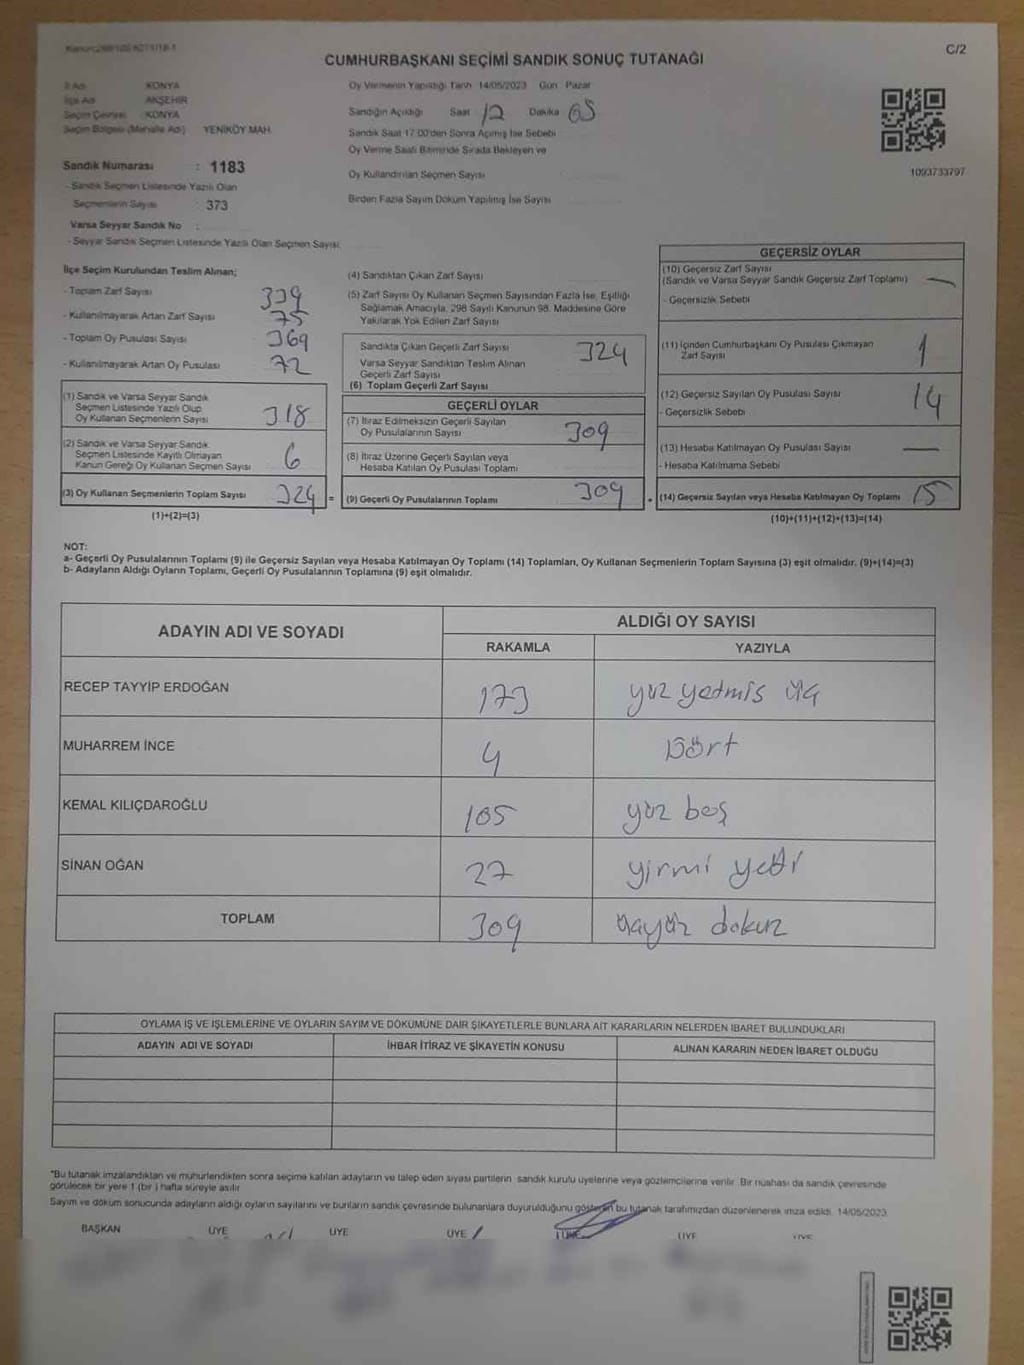 C/2
CUMHURBAŞKANI SEÇİMİ SANDIK SONUÇ TUTANAĞI
İl Adı KONYA
İlçe Adı AKŞEHİR
Seçim Çevresi KONYA
Seçim Bölgesi (Mahalle Adı) YENİKÖY MAH.
Sandık Numarası : 1183
- Sandık Seçmen Listesinde Yazılı Olan
Seçmenlerin Sayısı : 373
Varsa Seyyar Sandık No :
- Seyyar Sandık Seçmen Listesinde Yazılı Olan Seçmen Sayısı:
Oy Vermenin Yapıldığı Tarih 14/05/2023 Gün Pazar
Sandığın Açıldığı Saat 12 Dakika
Sandık Saat 17.00'den Sonra Açılmış İse Sebebi
Oy Verme Saati Bitiminde Sırada Bekleyen ve
Oy Kullandırılan Seçmen Sayısı
Birden Fazla Sayım Döküm Yapılmış İse Sayısı
1093733797
İlçe Seçim Kurulundan Teslim Alınan;
- Toplam Zarf Sayısı
- Kullanılmayarak Artan Zarf Sayısı 75
- Toplam Oy Pusulası Sayısı 369
- Kullanılmayarak Artan Oy Pusulası 72
(1) Sandık ve Varsa Seyyar Sandık
Seçmen Listesinde Yazılı Olup
Oy Kullanan Seçmenlerin Sayısı 318
(2) Sandık ve Varsa Seyyar Sandık
Seçmen Listesinde Kayıtlı Olmayan
Kanun Gereği Oy Kullanan Seçmen Sayısı 6
(3) Oy Kullanan Seçmenlerin Toplam Sayısı 324 =
(1)+(2)=(3)
(4) Sandıktan Çıkan Zarf Sayısı
(5) Zarf Sayısı Oy Kullanan Seçmen Sayısından Fazla İse, Eşitliği
Sağlamak Amacıyla, 298 Sayılı Kanunun 98. Maddesine Göre
Yakılarak Yok Edilen Zarf Sayısı
Sandıkta Çıkan Geçerli Zarf Sayısı 324
Varsa Seyyar Sandıktan Teslim Alınan
Geçerli Zarf Sayısı
(6) Toplam Geçerli Zarf Sayısı
GEÇERLİ OYLAR
(7) İtiraz Edilmeksizin Geçerli Sayılan
Oy Pusulalarının Sayısı 309
(8) İtiraz Üzerine Geçerli Sayılan veya
Hesaba Katılan Oy Pusulası Toplamı
(9) Geçerli Oy Pusulalarının Toplamı 309
GEÇERSİZ OYLAR
(10) Geçersiz Zarf Sayısı
(Sandık ve Varsa Seyyar Sandık Geçersiz Zarf Toplamı) —
- Geçersizlik Sebebi
(11) İçinden Cumhurbaşkanı Oy Pusulası Çıkmayan
Zarf Sayısı 1
(12) Geçersiz Sayılan Oy Pusulası Sayısı 14
- Geçersizlik Sebebi
(13) Hesaba Katılmayan Oy Pusulası Sayısı —
- Hesaba Katılmama Sebebi
(14) Geçersiz Sayılan veya Hesaba Katılmayan Oy Toplamı 15
(10)+(11)+(12)+(13)=(14)
NOT:
a- Geçerli Oy Pusulalarının Toplamı (9) ile Geçersiz Sayılan veya Hesaba Katılmayan Oy Toplamı (14) Toplamları, Oy Kullanan Seçmenlerin Toplam Sayısına (3) eşit olmalıdır. (9)+(14)=(3)
b- Adayların Aldığı Oyların Toplamı, Geçerli Oy Pusulalarının Toplamına (9) eşit olmalıdır.
ADAYIN ADI VE SOYADI ALDIĞI OY SAYISI
RAKAMLA YAZIYLA
RECEP TAYYİP ERDOĞAN 173 yüz yetmiş üç
MUHARREM İNCE 4 Dört
KEMAL KILIÇDAROĞLU 105 yüz beş
SİNAN OĞAN 27 yirmi yedi
TOPLAM 309 üçyüz dokuz
OYLAMA İŞ VE İŞLEMLERİNE VE OYLARIN SAYIM VE DÖKÜMÜNE DAİR ŞİKAYETLERLE BUNLARA AİT KARARLARIN NELERDEN İBARET BULUNDUKLARI
ADAYIN ADI VE SOYADI İHBAR İTİRAZ VE ŞİKAYETİN KONUSU ALINAN KARARIN NEDEN İBARET OLDUĞU
*Bu tutanak imzalandıktan ve mühürlendikten sonra seçime katılan adayların ve talep eden siyasi partilerin sandık kurulu üyelerine veya gözlemcilerine verilir. Bir nüshası da sandık çevresinde
görülecek bir yere 1 (bir) hafta süreyle asılır
Sayım ve döküm sonucunda adayların aldığı oyların sayılarını ve bunların sandık çevresinde bulunanlara duyurulduğunu gösteren bu tutanak tarafımızdan düzenlenerek imza edildi. 14/05/2023
BAŞKAN ÜYE ÜYE ÜYE ÜYE ÜYE